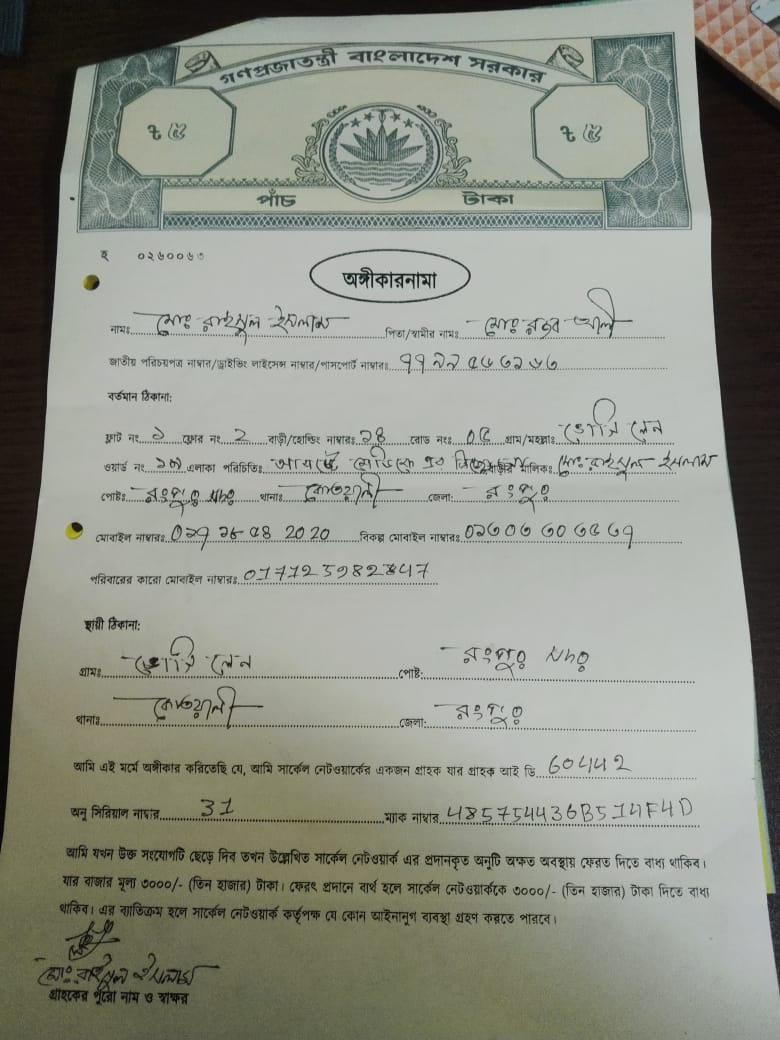 গণপ্রজাতন্ত্রী বাংলাদেশ সরকার
৳ ৫ ৳ ৫
পাঁচ টাকা
হ ০২৬০০৬৩
অঙ্গীকারনামা
নামঃ মোঃ রাইসুল ইসলাম পিতা/স্বামীর নামঃ মোঃ রজব আলী
জাতীয় পরিচয়পত্র নাম্বার/ড্রাইভিং লাইসেন্স নাম্বার/পাসপোর্ট নাম্বারঃ
বর্তমান ঠিকানা:
ফ্লাট নং ১ ফ্লোর নং 2 বাড়ী/হোল্ডিং নাম্বারঃ ১৪ রোড নংঃ ০৫ গ্রাম/মহল্লাঃ লেন
ওয়ার্ড নং এলাকা পরিচিতিঃ মালিকঃ মোঃ রাইসুল ইসলাম
পোষ্টঃ রংপুর সদর থানাঃ কোতয়ালী জেলা: রংপুর
মোবাইল নাম্বারঃ বিকল্প মোবাইল নাম্বারঃ
পরিবারের কারো মোবাইল নাম্বারঃ
স্থায়ী ঠিকানা:
গ্রামঃ লেন পোষ্ট: রংপুর সদর
থানাঃ কোতয়ালী জেলা: রংপুর
আমি এই মর্মে অঙ্গীকার করিতেছি যে, আমি সার্কেল নেটওয়ার্কের একজন গ্রাহক যার গ্রাহক আই ডি 60442
অনু সিরিয়াল নাম্বার 31 ম্যাক নাম্বার 485754436B514F4D
আমি যখন উক্ত সংযোগটি ছেড়ে দিব তখন উল্লেখিত সার্কেল নেটওয়ার্ক এর প্রদানকৃত অনুটি অক্ষত অবস্থায় ফেরত দিতে বাধ্য থাকিব।
যার বাজার মূল্য ৩০০০/- (তিন হাজার) টাকা। ফেরৎ প্রদানে ব্যর্থ হলে সার্কেল নেটওয়ার্ককে ৩০০০/- (তিন হাজার) টাকা দিতে বাধ্য
থাকিব। এর ব্যতিক্রম হলে সার্কেল নেটওয়ার্ক কর্তৃপক্ষ যে কোন আইনানুগ ব্যবস্থা গ্রহণ করতে পারবে।
মোঃ রাইসুল ইসলাম
গ্রাহকের পুরো নাম ও স্বাক্ষর